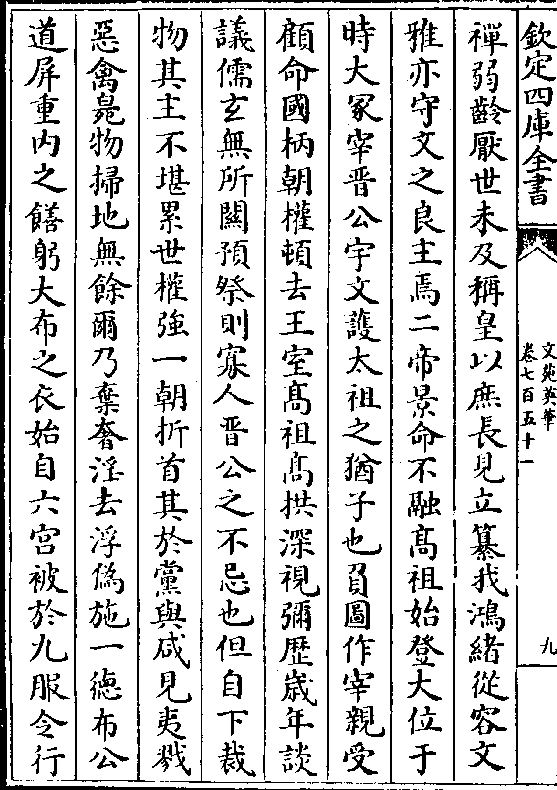 欽定四庫全書
文苑英華
卷七百五十一
九
禪弱齡厭世未及稱皇以庶長見立纂我鴻緒從容文
雅亦守文之良主焉二帝景命不融髙祖始登大位于
時大冢宰晋公宇文䕶太祖之猶子也負圖作宰親受
顧命國柄朝權頓去王室髙祖高拱深視彌歴歳年談
議儒玄無所闗預祭則寡人晋公之不忌也但自下裁
物其主不堪累世權強一朝折首其於黨與咸見夷戮
惡禽毚物掃地無餘爾乃棄奢淫去浮偽施一徳布公
道屏重内之饍躬大布之衣始自六宫被於九服令行